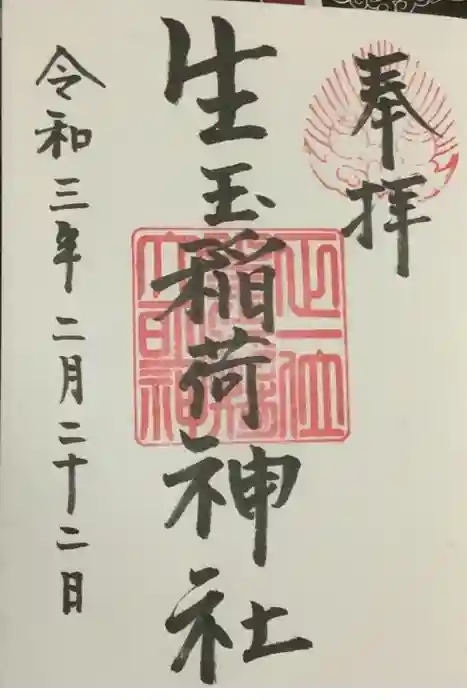 奉拝
生玉稲荷神社
令和三年二月二十二日
正一位